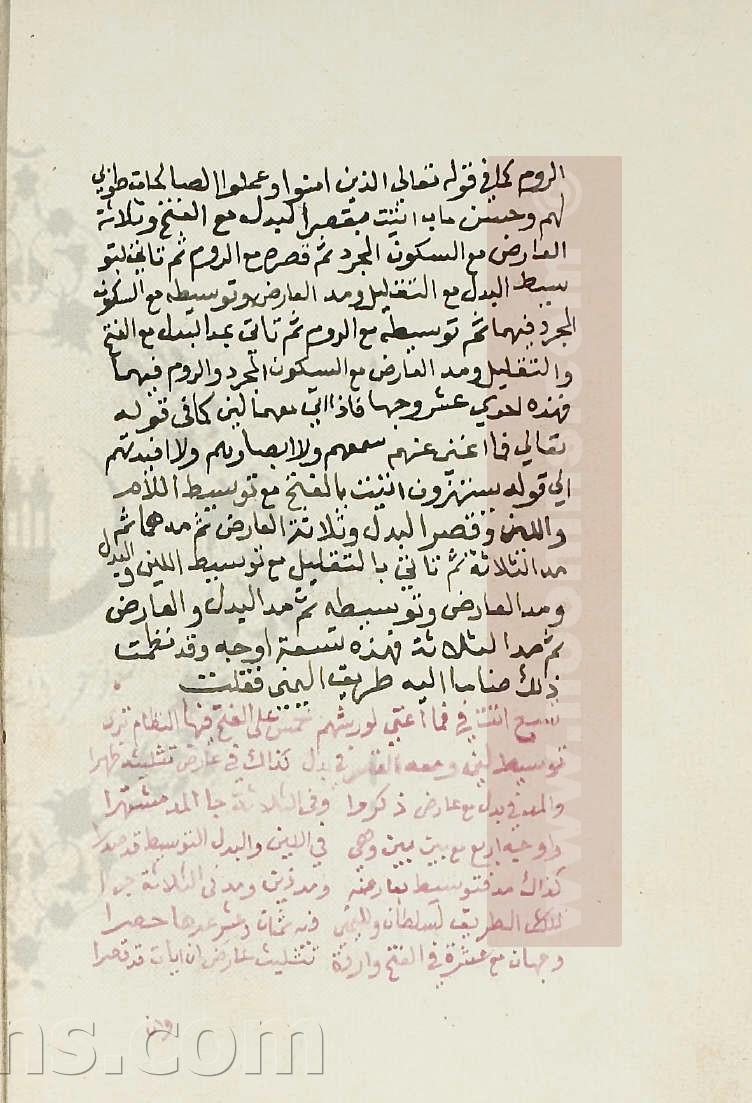 الروم كما في قوله تعالى الذين امنوا وعملوا الصالحات طوبى
لهم وحسن ماب اتيت بقصر البدل مع الفتح وثلاثة
العارض مع السكون المجرد ثم قصره مع الروم ثم تاتي بتو
سيط البدل مع التقليل ومد العارض وتوسيطه مع السكون
المجرد فيهما ثم توسيطه مع الروم ثم تاتي بمد البدل مع الفتح
والتقليل ومد العارض مع السكون المجرد والروم فيهما
فهذه احدي عشر وجها فاذا اتى معهما لين كما في قوله
تعالي فما اغنى عنهم سمعهم ولا ابصارهم ولا افئدتهم
الي قوله يستهزون اتيت بالفتح مع توسيط
واللين وقصر البدل وثلاثة العارض ثم مدهما ثم
مد الثلاثة ثم تاتي بالتقليل مع توسيط اللين والبدل
ومد العارض وتوسيطه ثم مد البدل والعارض
ثم مد الثلاثة فهذه تسعة اوجه وقد نظمت
ذلك ضاما اليه طريق اليمنى فقلت
اتت في فما اغني لورشهم خمس على الفتح النظام ترى
توسيط لين ومعه القصر في بدل كذاك في عارض تثليثه ظهرا
والمد في بدل مع عارض ذكروا وفى الثلاثة جا المد مشتهرا
واوجه اربع مع بين بين وهي في اللين والبدل التوسيط قد
كذاك مد فتوسيط بعارضه ومد ذين ومد فى الثلاثة
الطريق لسلطان ولليمنى وعشر حصرا
وجهان مع عشرة في الفتح واردة تثليث عارض ان ايات قد قصرا
www.insons.com
ns.com